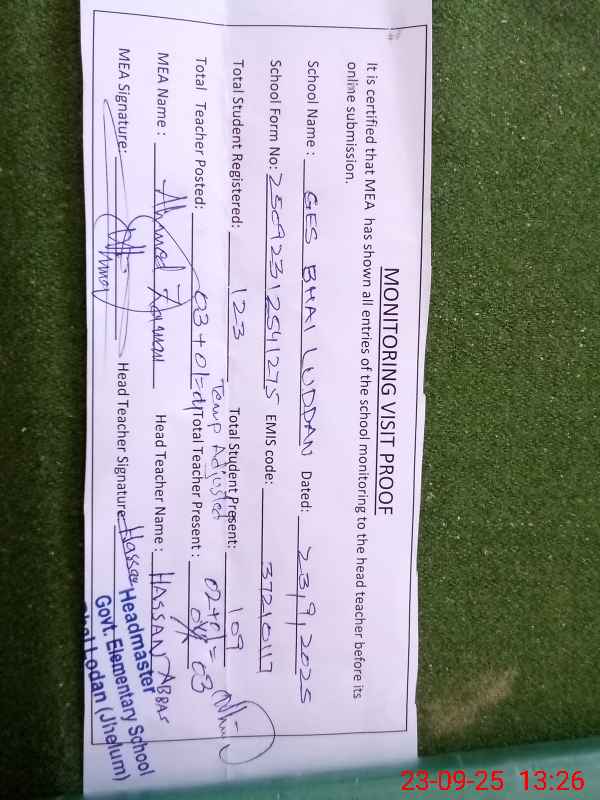 MONITORING VISIT PROOF
It is certified that MEA has shown all entries of the school monitoring to the head teacher before its
online submission.
School Name: GES BHAI LUDDAN Dated: 23,9,2025
School Form No: 25092312541275 EMIS code: 37210117
Total Student Registered: 123 Total Student Present: 109
Temp Adjusted
Total Teacher Posted: 03+01= Total Teacher Present: 02+01= 03
MEA Name: Ahmad Zaman Head Teacher Name: HASSAN ABBAS
MEA Signature: Head Teacher Signature: Hassan
Headmaster
Govt. Elementary School
Lodan (Jhelum)
23-09-25 13:26